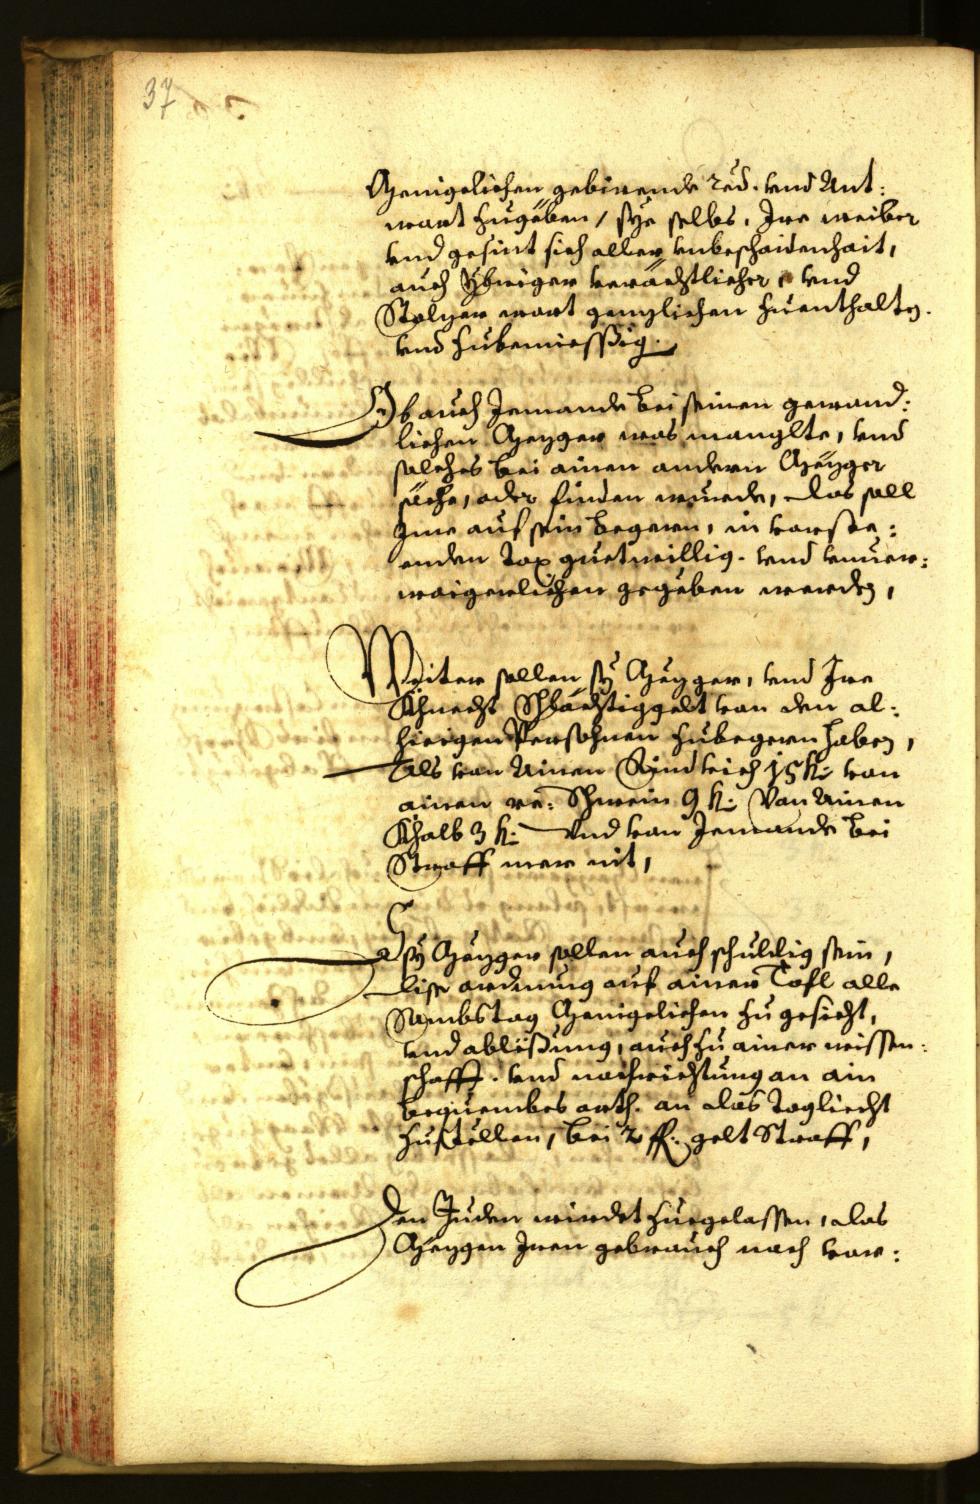 37
Menigelichen gebirende red. vnd Ant:
wort zugeben / sye selbs, Ire weiber
vnd gesint sich aller vnbeschaidenhait,
auch ybriger verächtlicher, vnd
Stolzer wort genzlichen zuenthalten.
vnd zubemiessig.
Ob auch Jemandt bei seinen gewand:
lichen Mezger was manglte, vnd
solches bei ainen andern Mezger
seche, oder finden wurde, das soll
Ime auf sein begern, in vorste:
enden Tax guetwillig. vnd vnuer:
waigerlichen gegeben werden,
Weiter sollen sy Mezger, vnd Ire
Khnecht Schlachtiggelt von den al:
hieigen Persohnen zubegern haben,
Als von Ainen Rindtvich 15 k: von
ainen re: Schwein 9 k: Von Ainen
Khalb 3 k: Vnd von Jemandt bei
Straff mer nit,
Sy Mezger sollen auch schuldig sein,
dise ordnung auf ainer Tafl alle
Sambstag Menigelichen zu gesicht,
vnd ablösung, auch zu ainer wissen:
schafft. vnd nachrichtung an ain
bequembes orth. an das Tagliecht
zustellen, bei 2 ff: gelt Straff,
Den Juden wirdet zuegelassen, das
Mezgen Iren gebrauch nach vor: